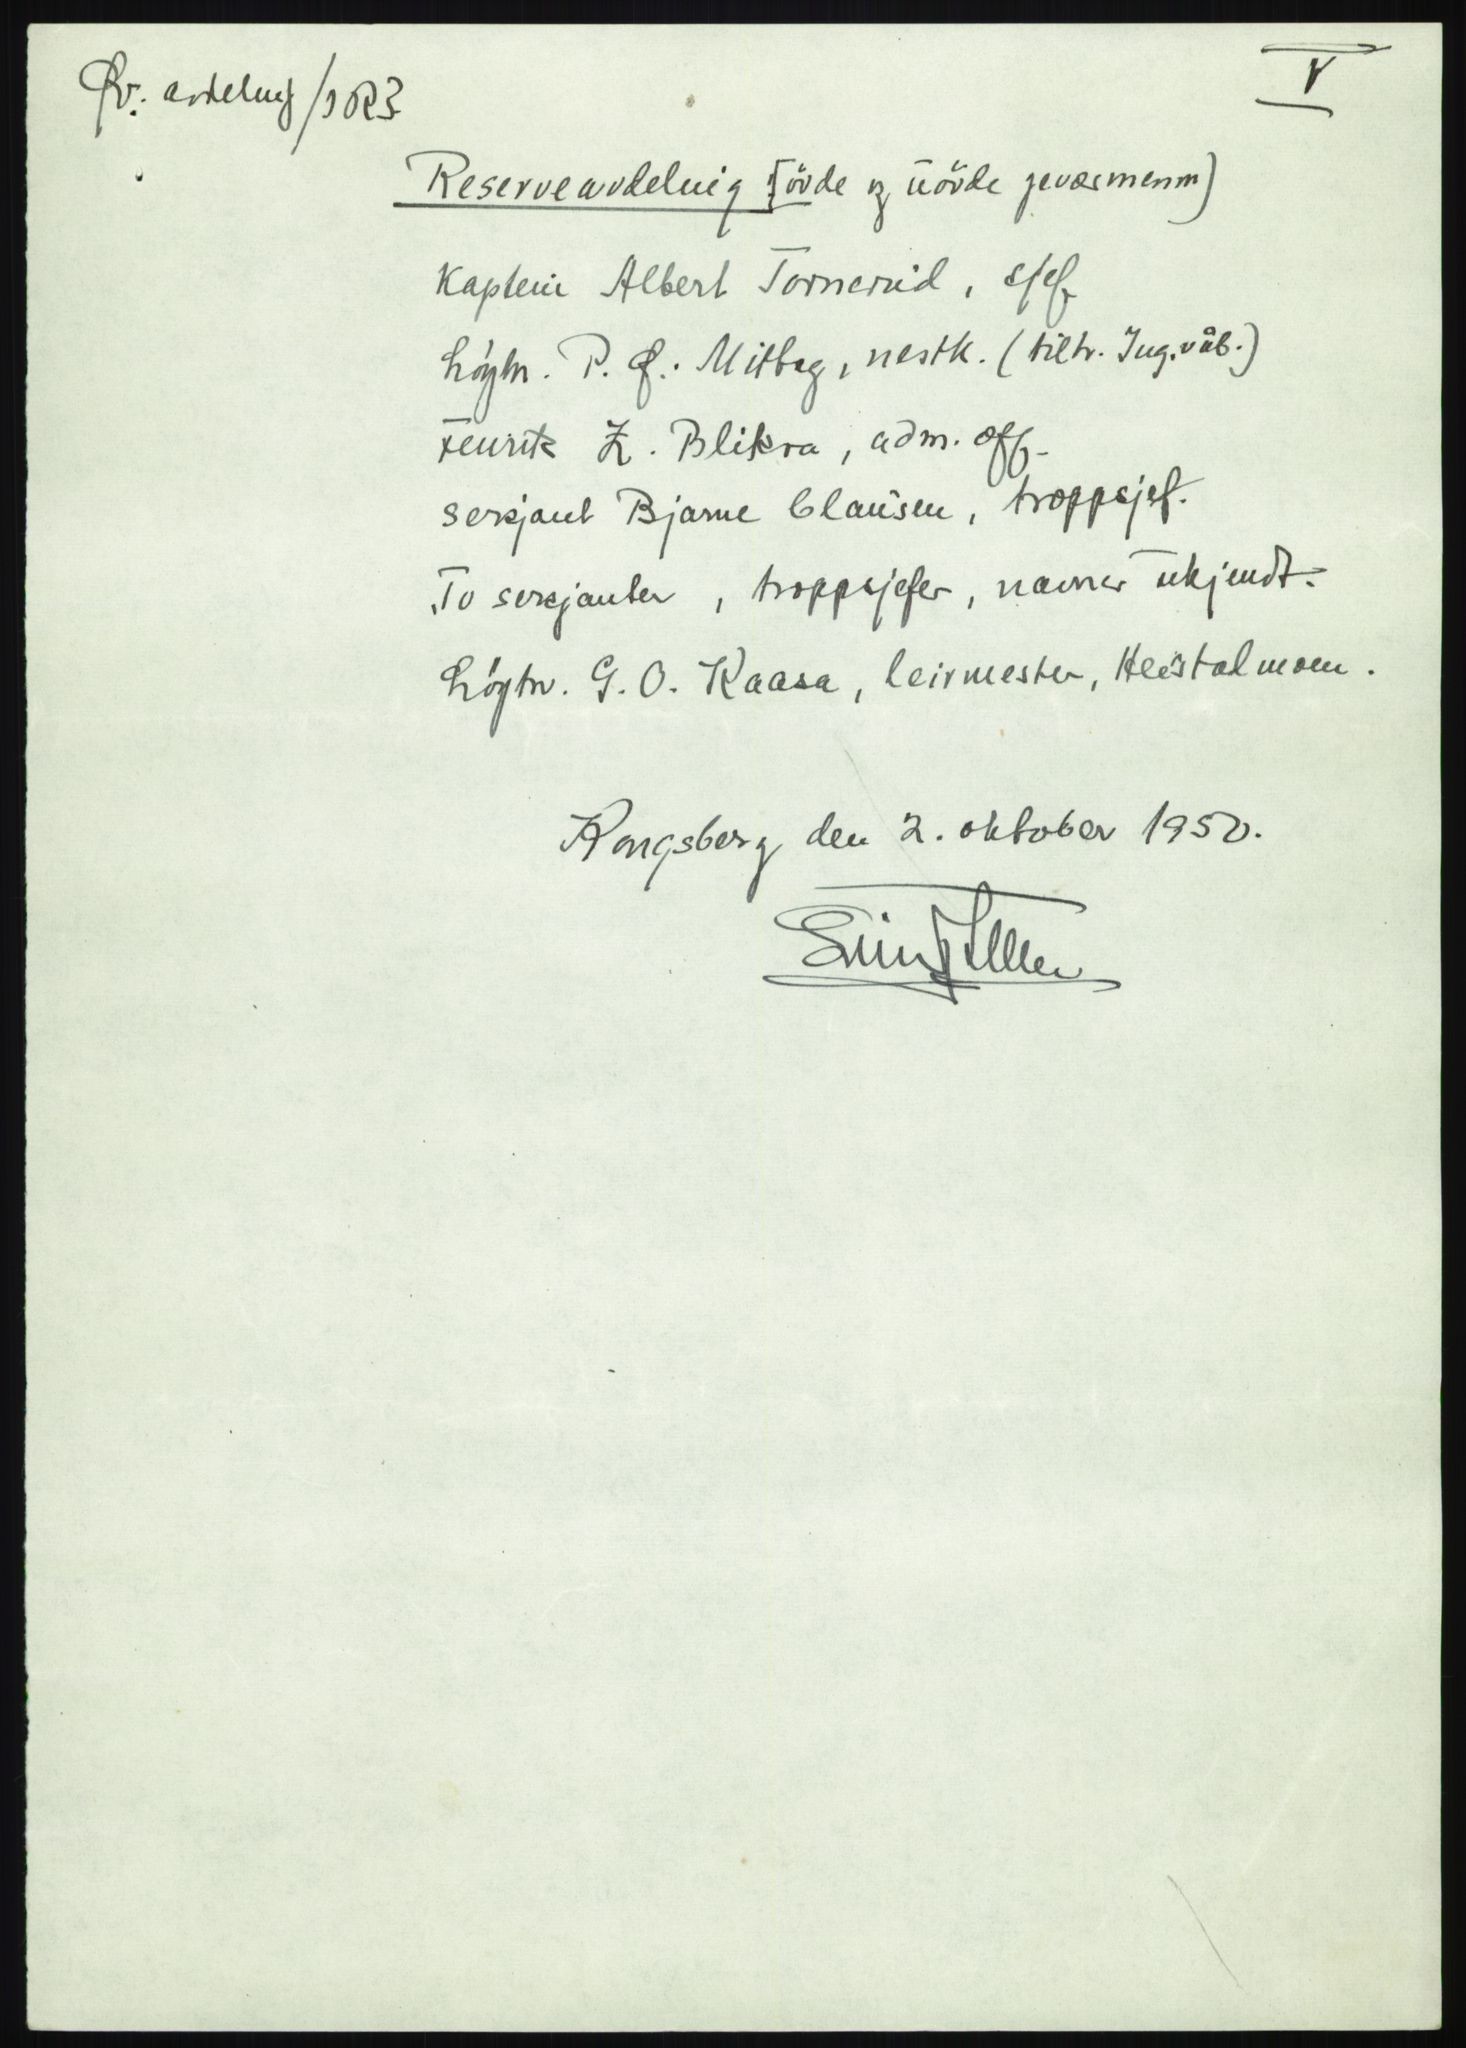 Rv. avdeling/IR3
V
Reserveavdeling (övde og uövde geværmenn)
Kaptein Albert Tornerud, sjef
Löytn. P. Mitbøg, nestk. (tiltr. Ing.våb.)
Fenrik Z. Blikra, adm. off.
sersjant Bjarne Clausen, troppsjef.
To sersjanter, troppsjefer, navner ukjendt.
Löytn. G. O. Kaasa, leirmester, Heistadmoen.
Kongsberg den 2. oktober 1950.